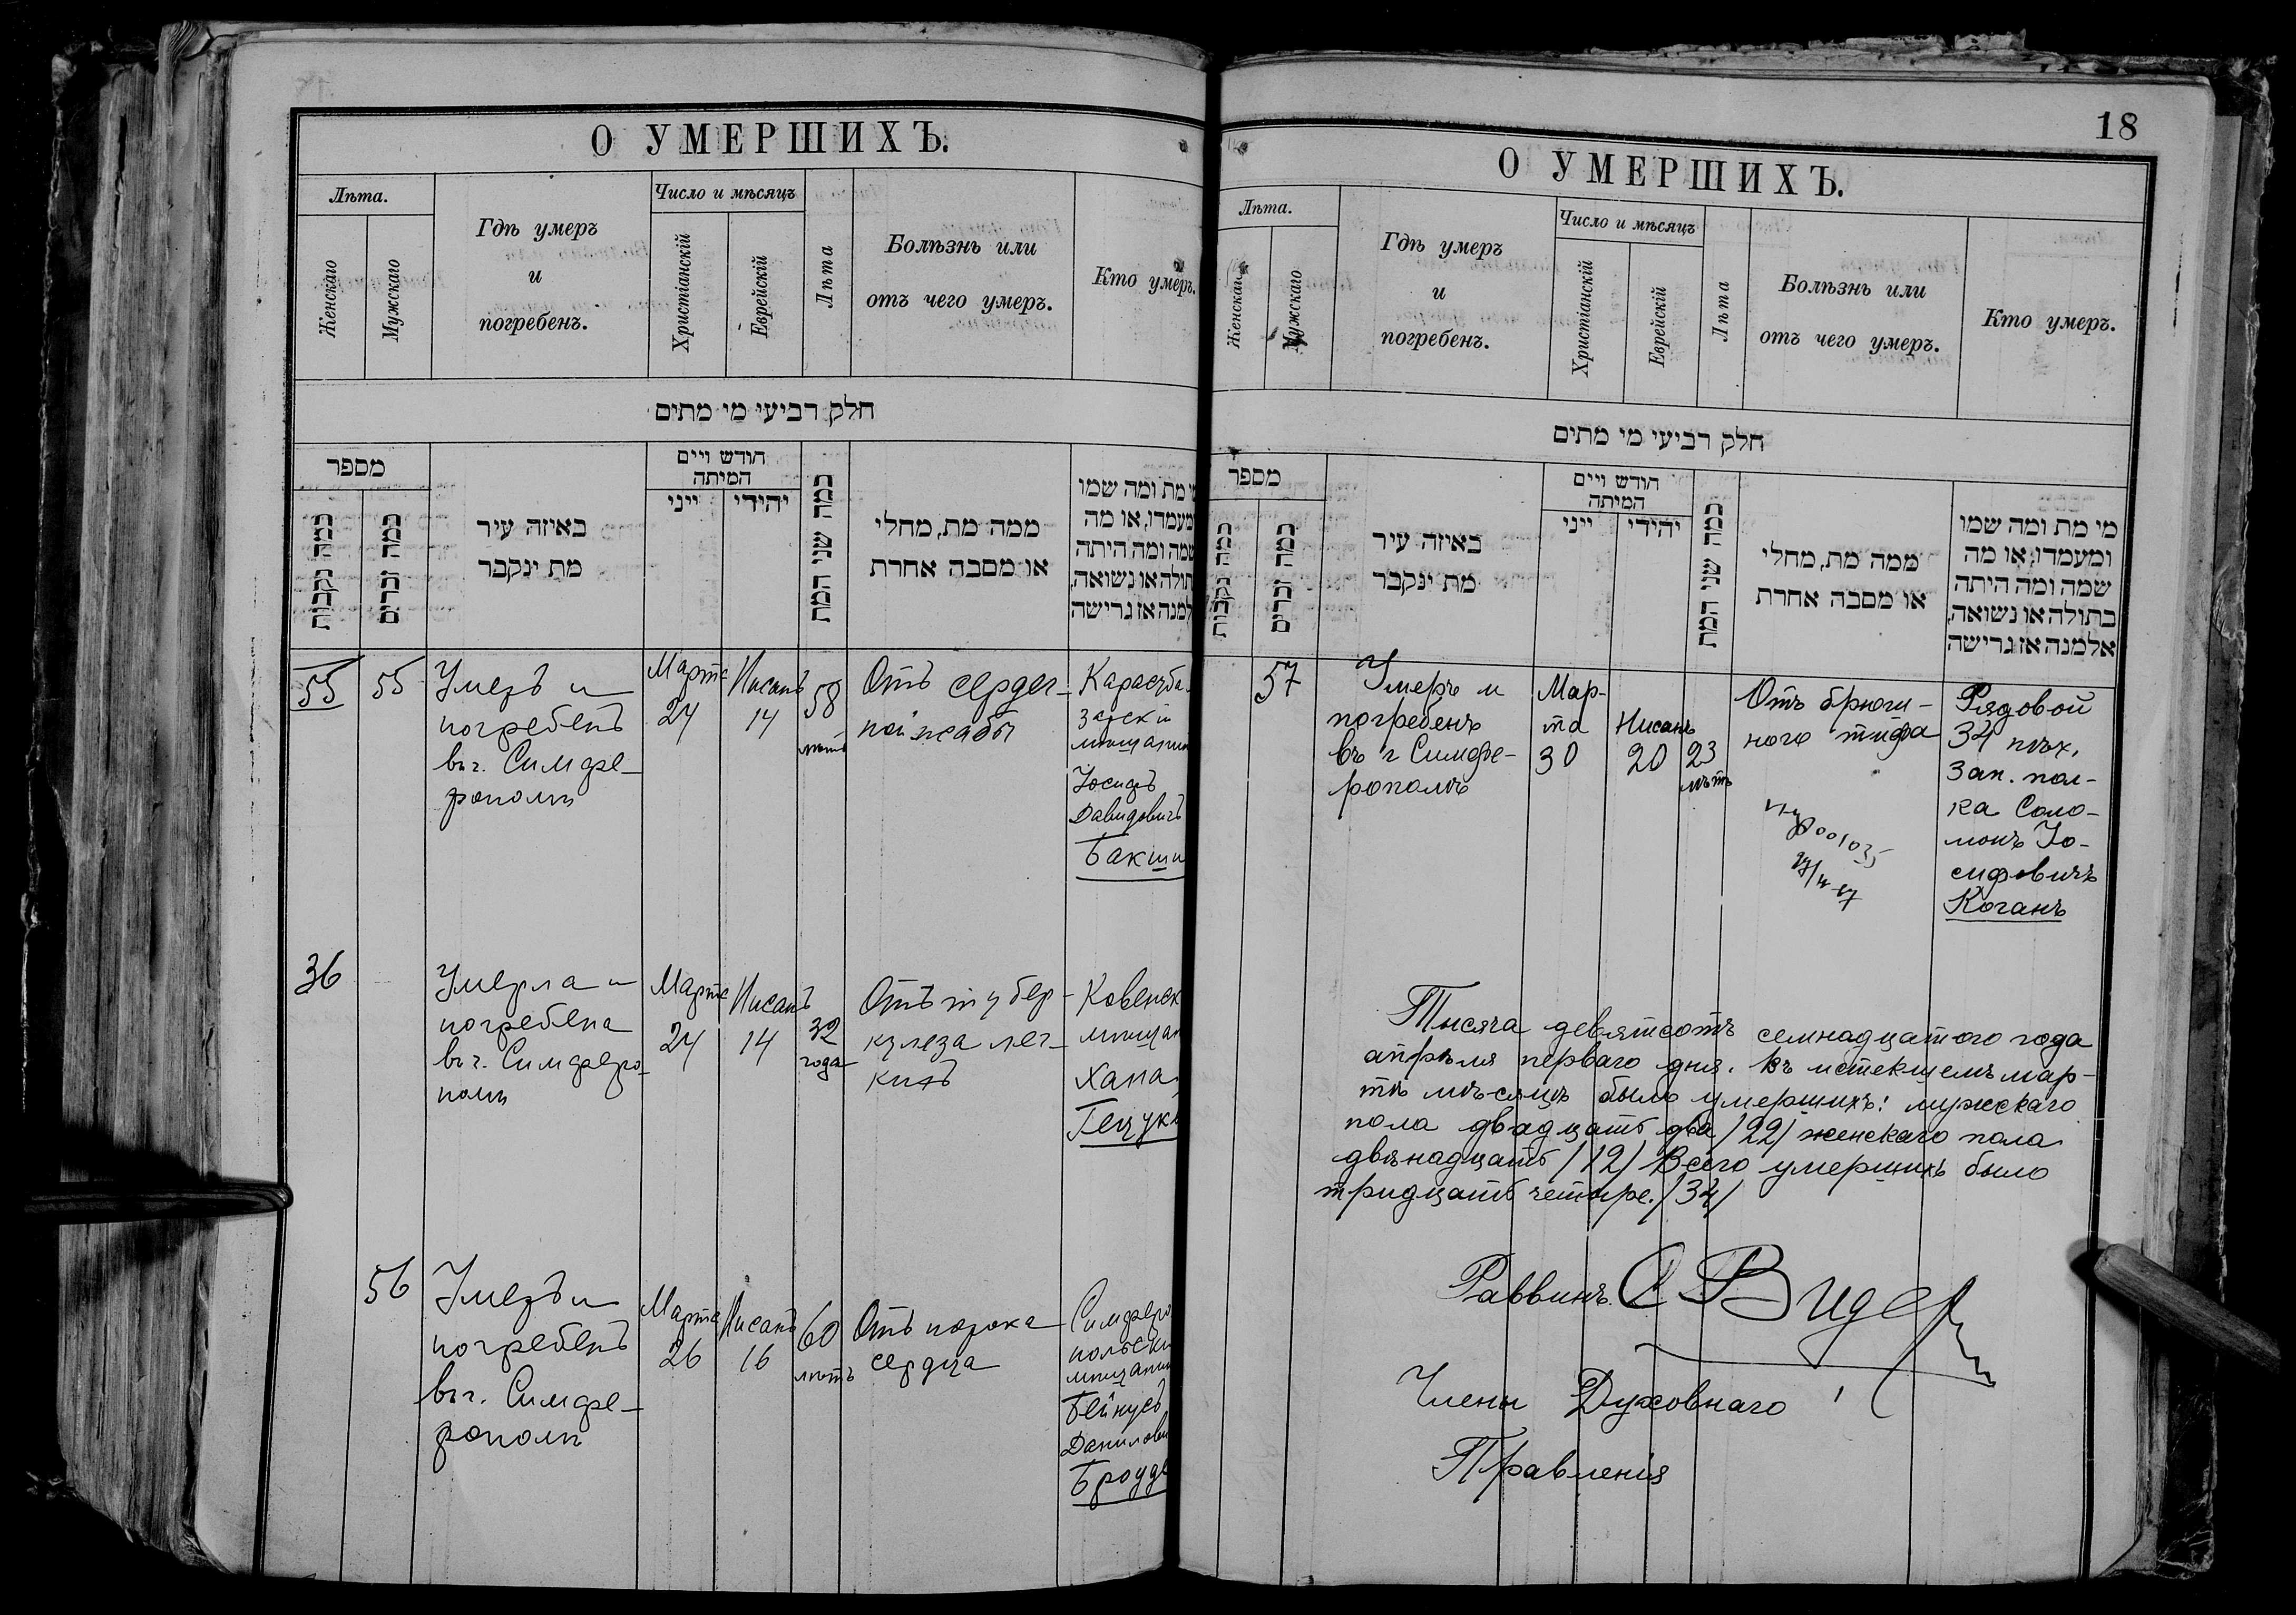 О УМЕРШИХЪ.
Лѣта.
Женскаго
Мужскаго
Гдѣ умеръ
и
погребенъ.
Число и мѣсяцъ
Христіанскій
Еврейскій
Лѣта
Болѣзнь или
отъ чего умеръ.
Кто умеръ.
חלק רביעי מי מתים
מספר
כמה נקבות
כמה זכרים
באיזה עיר
מת ינקבר
חודש ויים
המיתה
ייני
יהידי
כמה שני המת
ממה מת, מחלי
או מסבה אחרת
מי מת ומה שמו
ומעמדו, או מה
שמה ומה היתה
בתולה או נשואה,
אלמנה אז גרישה
55
55
Умеръ и
погребенъ
въ г. Симфе-
рополѣ
Марта
24
Нисанъ
14
58
лѣтъ
Отъ сердеч-
ной жабы
Карасуба-
зарскій
мѣщанин
Іосифъ
Давидовичъ
Бакши
36
Умерла и
погребена
въ г. Симферо-
полѣ
Марта
24
Нисанъ
14
32
года
Отъ тубер-
кулеза лег-
кихъ
Ковенск
мѣщан
Хана
56
Умеръ и
погребенъ
въ г. Симфе-
рополѣ
Марта
26
Нисанъ
16
60
лѣтъ
Отъ порока
сердца
Симферо
польскі
мѣщанин
Бейнусъ
Данилови
18
О УМЕРШИХЪ.
Лѣта.
Женскаго
Мужскаго
Гдѣ умеръ
и
погребенъ.
Число и мѣсяцъ
Христіанскій
Еврейскій
Лѣта
Болѣзнь или
отъ чего умеръ.
Кто умеръ.
חלק רביעי מי מתים
מספר
כמה נקבות
כמה זכרים
באיזה עיר
מת ינקבר
חודש ויים
המיתה
ייני
יהידי
כמה שני המת
ממה מת, מחלי
או מסבה אחרת
מי מת ומה שמו
ומעמדו, או מה
שמה ומה היתה
בתולה או נשואה,
אלמנה אז גרישה
57
Умеръ и
погребенъ
въ г Симфе-
рополѣ
Мар-
та
30
Нисанъ
20
23
лѣтъ
Отъ брюш-
ного тифа
001035
Рядовой
34 пѣх.
зап. пол-
ка Соло-
монъ Іо-
сифовичъ
Коганъ
Тысяча девятсотъ семнадцатого года
апрѣля перваго дня. Въ истекшемъ мар-
тѣ мѣсяцѣ было умершихъ: мужскаго
пола двадцать два /22/ женскаго пола
двѣнадцать /12/ Всего умершихъ было
тридцать четыре. /34/
Раввинъ
Члены Духовнаго
Правленія